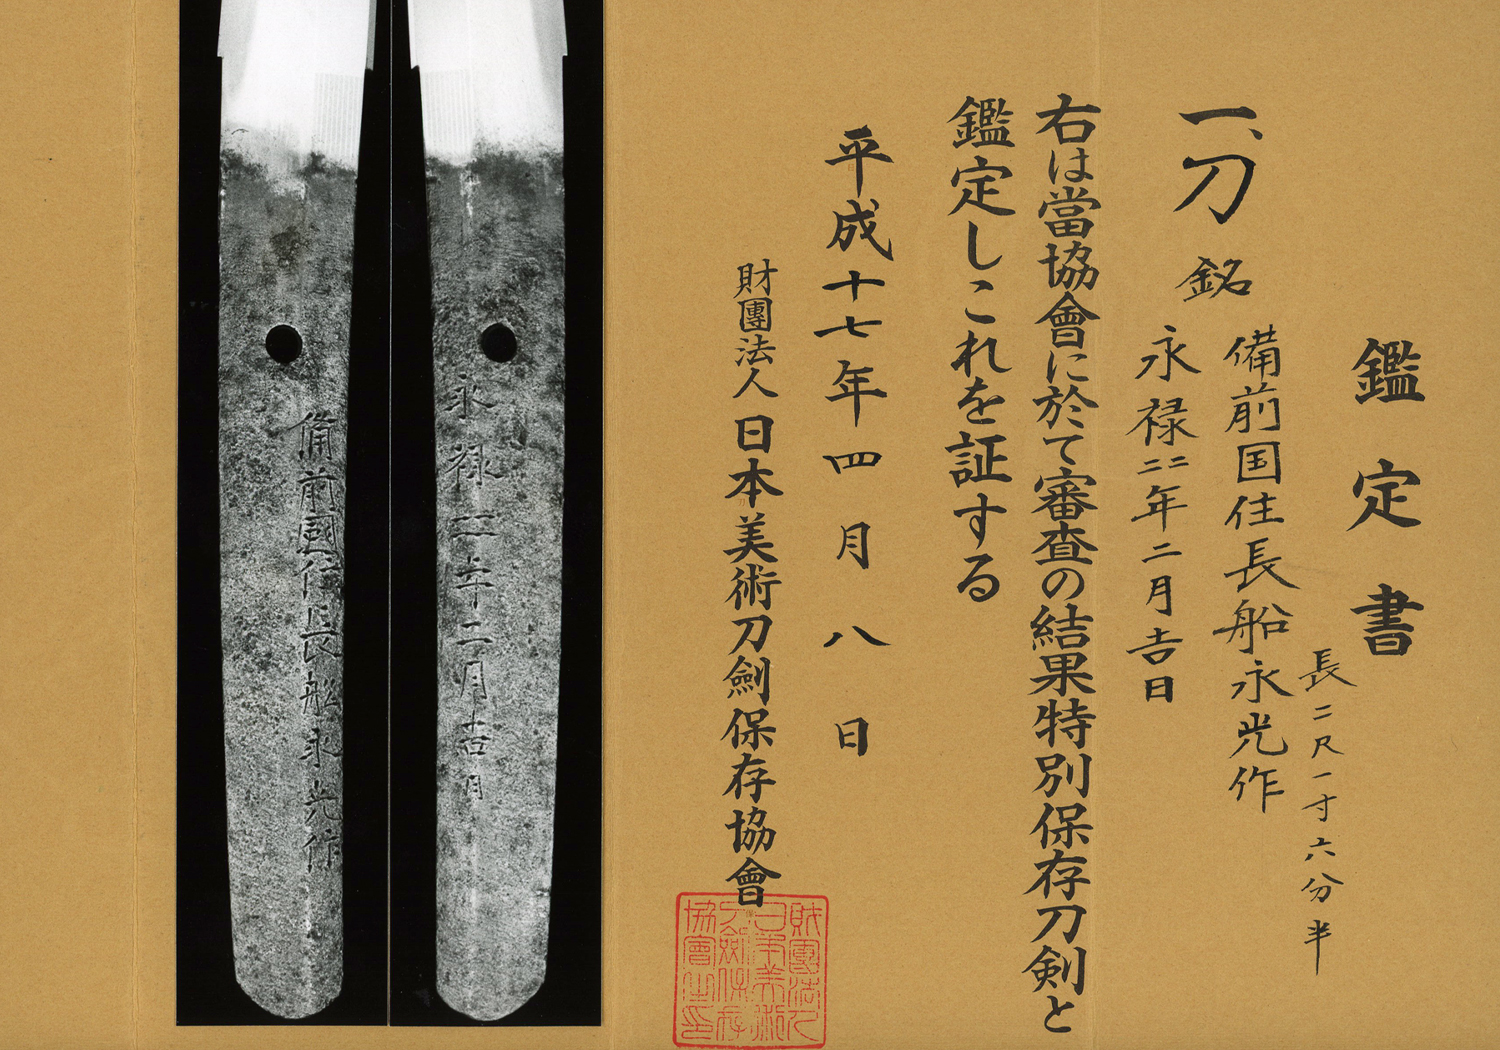 鑑定書
一、刀 銘
備前国住長船永光作
長二尺一寸六分半
永禄二二年二月吉日
右は當協會に於て審査の結果特別保存刀剣と
鑑定しこれを証する
平成十七年四月八日
財團法人日本美術刀劍保存協會
財團法人
日本美術
刀劍保存
協會之印
永禄二二年二月吉日
備前國住長船永光作